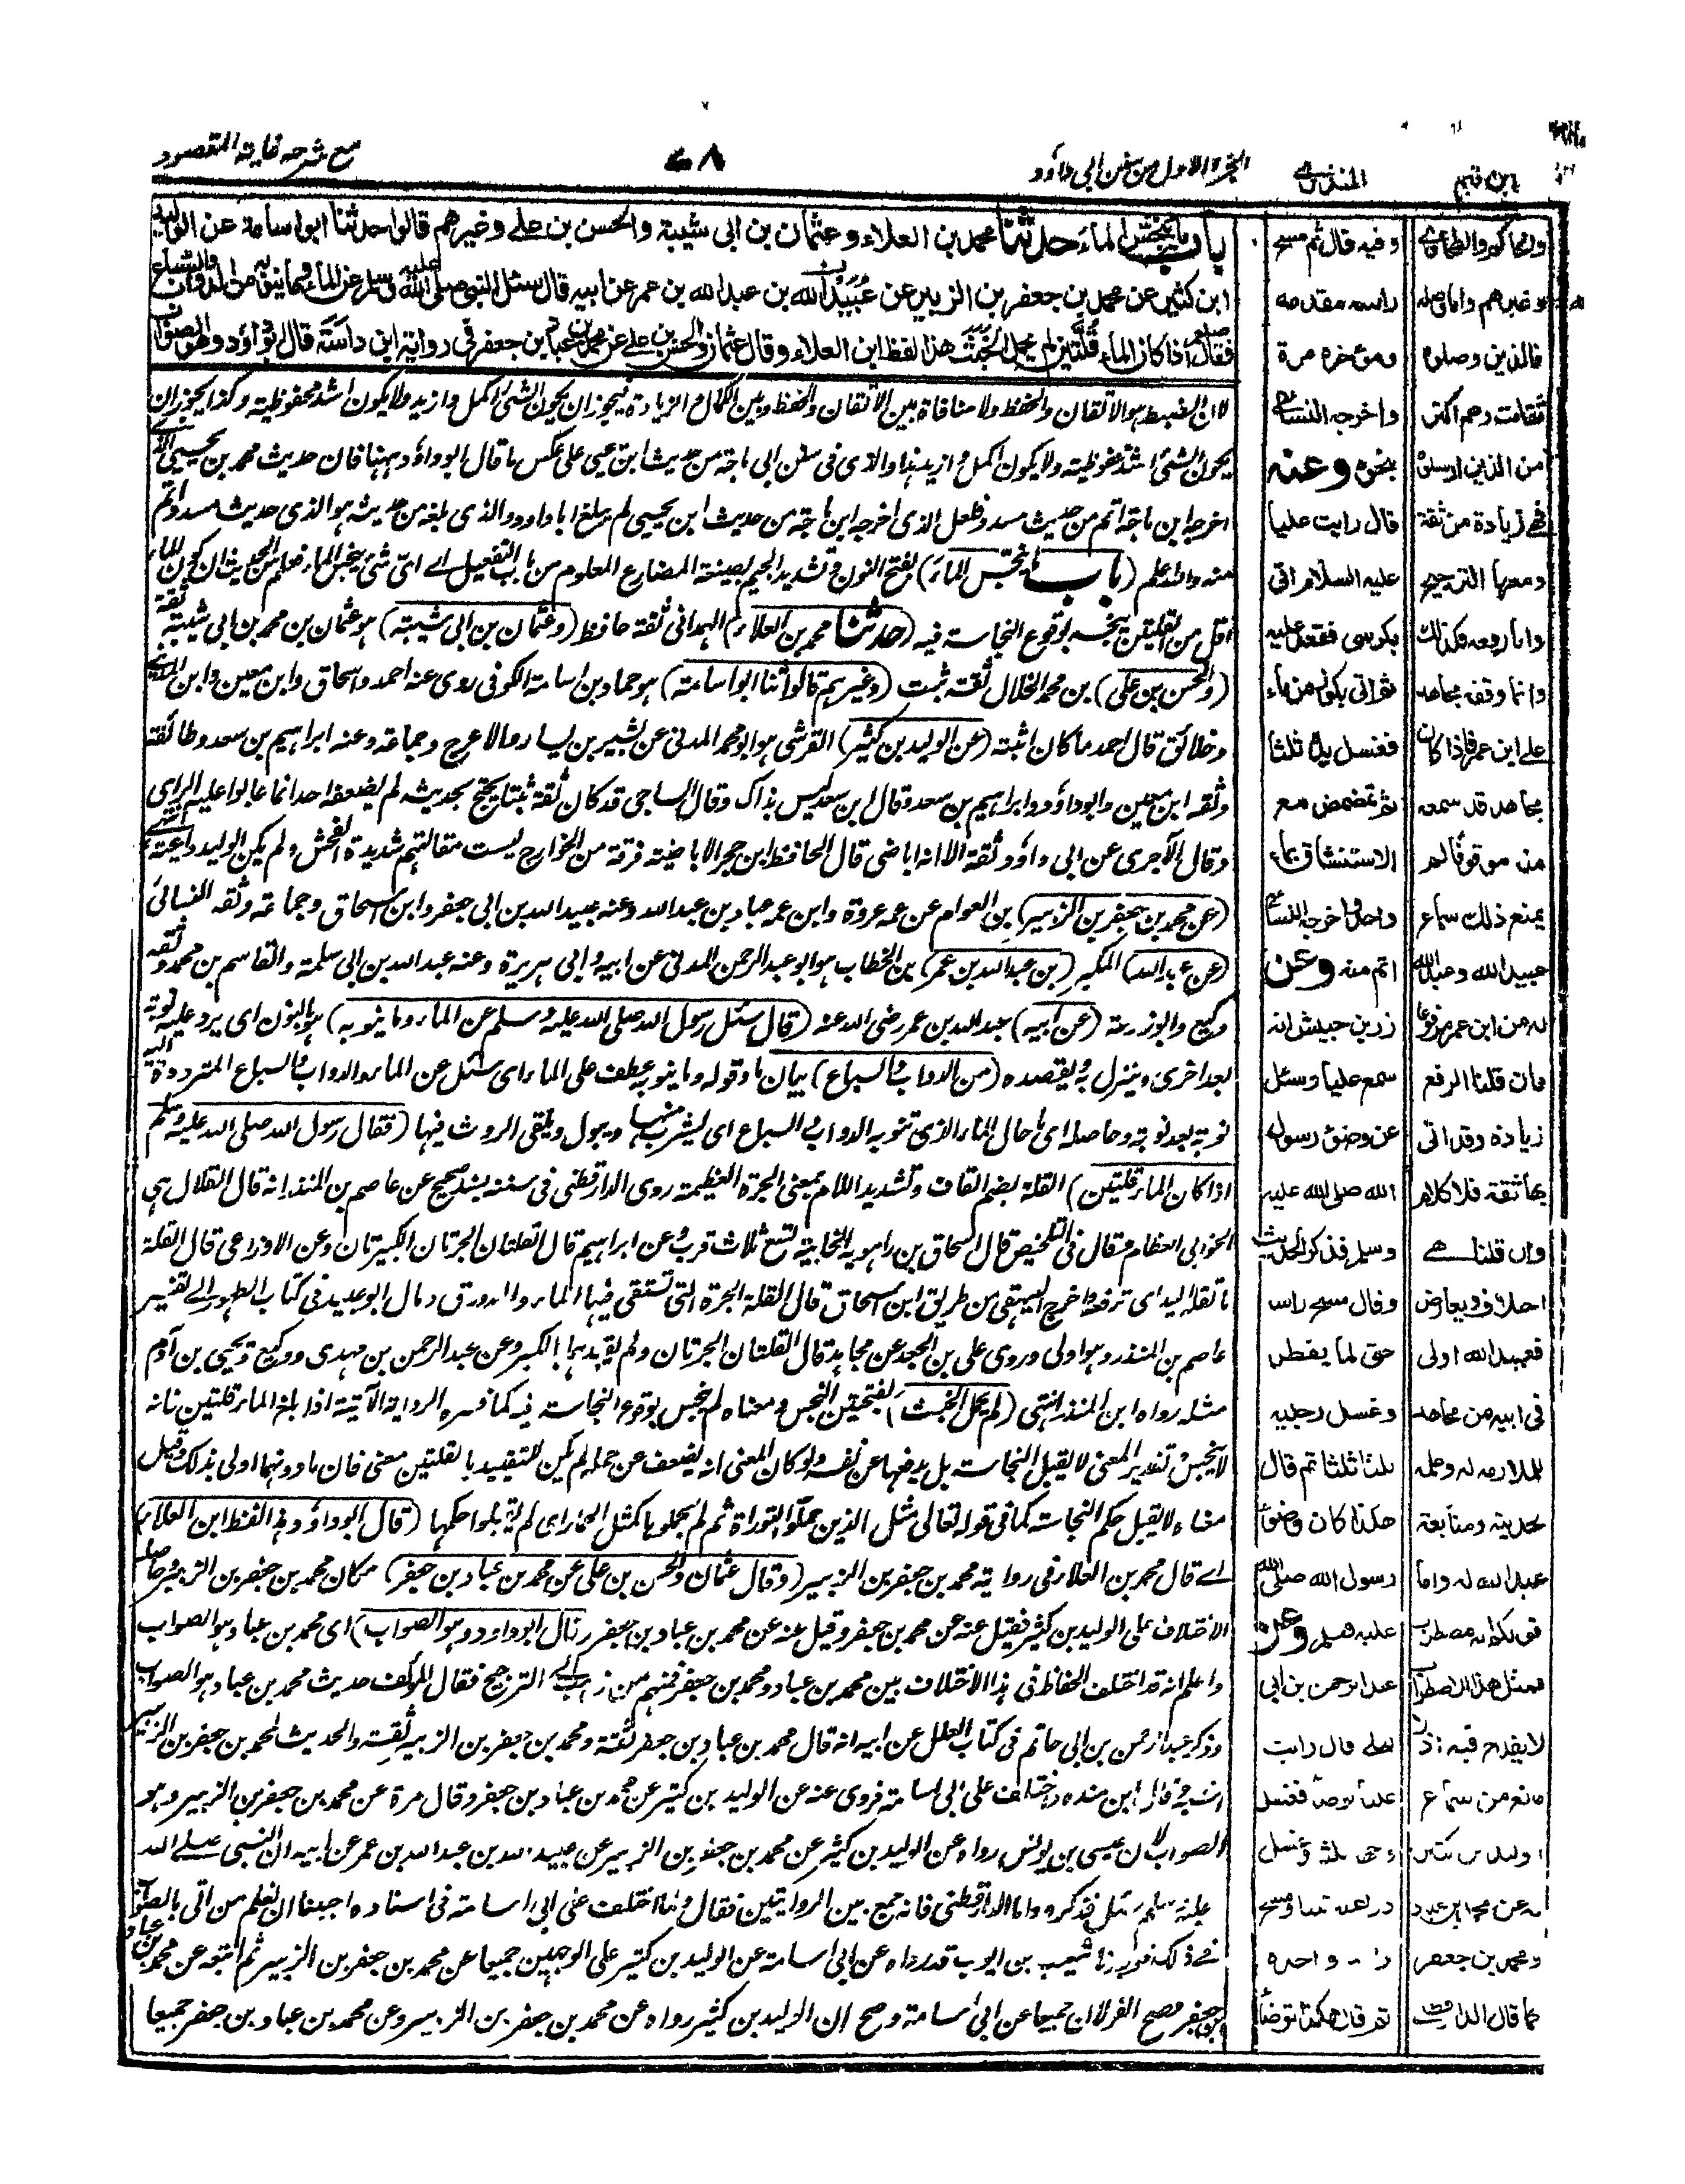 ابن قيم
المنذري
الجزء الاول من سنن ابى داود
٧٨
مع شرحه غاية المقصود
باب ما ينجس الماء حدثنا محمد بن العلاء وعثمان بن ابى شيبة والحسن بن على وغيرهم قالوا حدثنا ابو اسامة عن الوليد
ابن كثير عن محمد بن جعفر بن الزبير عن عبيد الله بن عبد الله بن عمر عن ابيه قال سئل النبى صلى الله عليه وسلم عن الماء وما ينوبه من الدواب والسباع
فقال اذا كان الماء قلتين لم يحمل الخبث هذا لفظ ابن العلاء وقال عثمان والحسن بن على عن محمد بن عباد بن جعفر فى رواية ابن داسة قال ابو داود وهو الصواب
لان الضبط هو الاتقان والحفظ ولا منافاة بين الاتقان والحفظ وبين الكمال والزيادة فيجوز ان يكون الشئ اكمل وازيد ولا يكون اشد محفوظية وكذا يجوز ان
يكون الشئ اشد محفوظية ولا يكون اكمل وازيد هذا والذى فى سنن ابن ماجة من حديث ابن يحيى على عكس ما قال ابو داود ههنا فان حديث محمد بن يحيى الذى
اخرجه ابن ماجة اتم من حديث مسدد فلعل الذى اخرجه ابن ماجة من حديث ابن يحيى لم يبلغ ابا داود والذى بلغه من حديثه هو الذى حديث مسدد اتم
منه والله اعلم (باب ما ينجس الماء) بفتح النون وتشديد الجيم بصيغة المضارع المعلوم من باب التفعيل اى اىّ شئ ينجس الماء فعلم من الحديث ان كون الماء
اقل من القلتين ينجسه بوقوع النجاسة فيه (حدثنا محمد بن العلاء) الهمدانى ثقة حافظ (وعثمان بن ابى شيبة) هو عثمان بن محمد بن ابى شيبة ثقة
(والحسن بن على) بن محمد الخلال ثقة ثبت (وغيرهم قالوا ثنا ابو اسامة) هو حماد بن اسامة الكوفى روى عنه احمد واسحاق وابن معين وابن المدينى
وخلائق قال احمد ما كان اثبته (عن الوليد بن كثير) القرشى هو ابو محمد المدنى عن بشير بن يسار والاعرج وجماعة وعنه ابراهيم بن سعد وطائفة
وثقه ابن معين وابو داود وابراهيم بن سعد وقال ابن سعد ليس بذاك وقال الساجى قد كان ثقة ثبتا يحتج بحديثه لم يضعفه احد انما عابوا عليه الراى
وقال الآجرى عن ابى داود ثقة الا انه اباضى قال الحافظ ابن حجر الاباضية فرقة من الخوارج ليست مقالتهم شديدة الفحش ولم يكن الوليد داعية انتهى
(عن محمد بن جعفر بن الزبير) بن العوام عن عمه عروة وابن عمه عباد بن عبد الله وعنه عبيد الله بن ابى جعفر وابن اسحاق وجماعة وثقه النسائى
(عن عبد الله) المكبر (بن عبد الله بن عمر) بن الخطاب هو ابو عبد الرحمن المدنى عن ابيه وابى هريرة وعنه عبد الله بن ابى سلمة والقاسم بن محمد وثقه
وكيع وابو زرعة (عن ابيه) عبد الله بن عمر رضى الله عنه (قال سئل رسول الله صلى الله عليه وسلم عن الماء وما ينوبه) هو بالنون اى يرد عليه نوبة
بعد اخرى وينزل به ويقصده (من الدواب والسباع) بيان ما وقوله وما ينوبه عطف على الماء اى سئل عن الماء والدواب والسباع المترددة اليه
نوبة بعد نوبة وحاصله اى ما حال الماء الذى تنوبه الدواب والسباع اى ليشرب منها ويبول ويلقى الروث فيها (فقال رسول الله صلى الله عليه وسلم
اذا كان الماء قلتين) القلة بضم القاف وتشديد اللام بمعنى الجرة العظيمة روى الدارقطنى فى سننه بسند صحيح عن عاصم بن المنذر انه قال القلال هى
الخوابى العظام وقال فى التلخيص قال اسحاق بن راهويه الخابية تسع ثلاث قرب وعن ابراهيم قال القلتان الجرتان الكبيرتان وعن الاوزاعى قال القلة
ما تقله اليد اى ترفعه واخرج البيهقى من طريق ابن اسحاق قال القلة الجرة التى تستقى فيها الماء والدورق ومال ابو عبيد فى كتاب الطهور الى تفسير
عاصم بن المنذر وهو اولى وروى على بن الجعد عن مجاهد قال القلتان الجرتان ولم يقيدهما بالكبر وعن عبد الرحمن بن مهدى ووكيع ويحيى بن آدم
مثله رواه ابن المنذر انتهى (لم يحمل الخبث) بفتحتين النجس ومعناه لم ينجس بوقوع النجاسة فيه كما فسره الرواية الآتية اذا بلغ الماء قلتين فانه
لا ينجس وتقدير المعنى لا يقبل النجاسة بل يدفعها عن نفسه ولو كان المعنى انه يضعف عن حمله لم يكن للتقييد بالقلتين معنى فان ما دونهما اولى بذلك وقيل
معناه لا يقبل حكم النجاسة كما فى قوله تعالى مثل الذين حملوا التوراة ثم لم يحملوها كمثل الحمار اى لم يقبلوا حكمها (قال ابو داود وهذا لفظ ابن العلاء)
اى قال محمد بن العلاء فى روايته محمد بن جعفر بن الزبير (وقال عثمان والحسن بن على عن محمد بن عباد بن جعفر) مكان محمد بن جعفر بن الزبير وحاصله
الاختلاف على الوليد بن كثير فقيل عنه عن محمد بن جعفر وقيل عنه عن محمد بن عباد بن جعفر (قال ابو داود وهو الصواب) اى محمد بن عباد هو الصواب
واعلم انه قد اختلف الحفاظ فى هذا الاختلاف بين محمد بن عباد ومحمد بن جعفر فمنهم من ذهب الى الترجيح فقال المؤلف حديث محمد بن عباد هو الصواب
وذكر عبد الرحمن بن ابى حاتم فى كتاب العلل عن ابيه انه قال محمد بن عباد بن جعفر ثقة ومحمد بن جعفر بن الزبير ثقة والحديث لمحمد بن جعفر بن الزبير
اشبه وقال ابن منده واختلف على ابى اسامة فروى عنه عن الوليد بن كثير عن محمد بن عباد بن جعفر وقال مرة عن محمد بن جعفر بن الزبير وهو
الصواب لان عيسى بن يونس رواه عن الوليد بن كثير عن محمد بن جعفر بن الزبير عن عبيد الله بن عبد الله بن عمر عن ابيه ان النبى صلى الله
عليه وسلم سئل فذكره واما الدارقطنى فانه جمع بين الروايتين فقال ولما اختلف على ابى اسامة فى اسناده احببنا ان نعلم من اتى بالصواب
فى ذلك فوجدنا شعيب بن ايوب قد رواه عن ابى اسامة عن الوليد بن كثير على الوجهين جميعا عن محمد بن جعفر بن الزبير ثم اتبعه عن محمد بن عباد
بن جعفر فصح القولان جميعا عن ابى اسامة وصح ان الوليد بن كثير رواه عن محمد بن جعفر بن الزبير وعن محمد بن عباد بن جعفر جميعا
وفيه قال ثم مسح
راسه مقدمه
ومؤخره مرة
واخرجه النسائى
بنحوه وعنه
قال رايت عليا
عليه السلام اتى
بكرسى فقعد عليه
ثم اتى بكوز من ماء
فغسل يديه ثلثا
ثم تمضمض مع
الاستنشاق بماء
واحد واخرجه النسائى
اتم منه وعن
زر بن حبيش انه
سمع عليا وسئل
عن وضوء رسول
الله صلى الله عليه
وسلم فذكر الحديث
وقال مسح راسه
حتى لما يقطر
وغسل رجليه
ثلثا ثلثا ثم قال
هكذا كان وضوء
رسول الله صلى الله
عليه وسلم وعن
عبد الرحمن بن ابى
ليلى قال رايت
عليا توضأ فغسل
وجهه ثلثا وغسل
ذراعيه ثلثا ومسح
واحدة
ثم قال هكذا توضأ
والحاكم والطحاوى
وغيرهم واما وصله
فالذين وصلوه
ثقات وهم اكثر
من الذين ارسلوه
فهى زيادة من ثقة
ومعها الترجيح
واما رفعه فكذلك
وانما وقفه مجاهد
على ابن عمر فاذا كان
مجاهد قد سمعه
منه موقوفا لم
يمنع ذلك سماع
عبيد الله وعبد الله
له من ابن عمر مرفوعا
فان قلنا الرفع
زيادة وقد اتى
بها ثقة فلا كلام
وان قلنا هى
اختلاف وتعارض
فعبيد الله اولى
فى ابيه من مجاهد
لملازمته له وعلمه
بحديثه ومتابعة
عبد الله له واما
قولكم انه مضطرب
فمثل هذا الاضطراب
لا يقدح فيه اذ لا
مانع من سماع
الوليد بن كثير
له عن محمد بن عباد
ومحمد بن جعفر
كما قال الدارقطنى